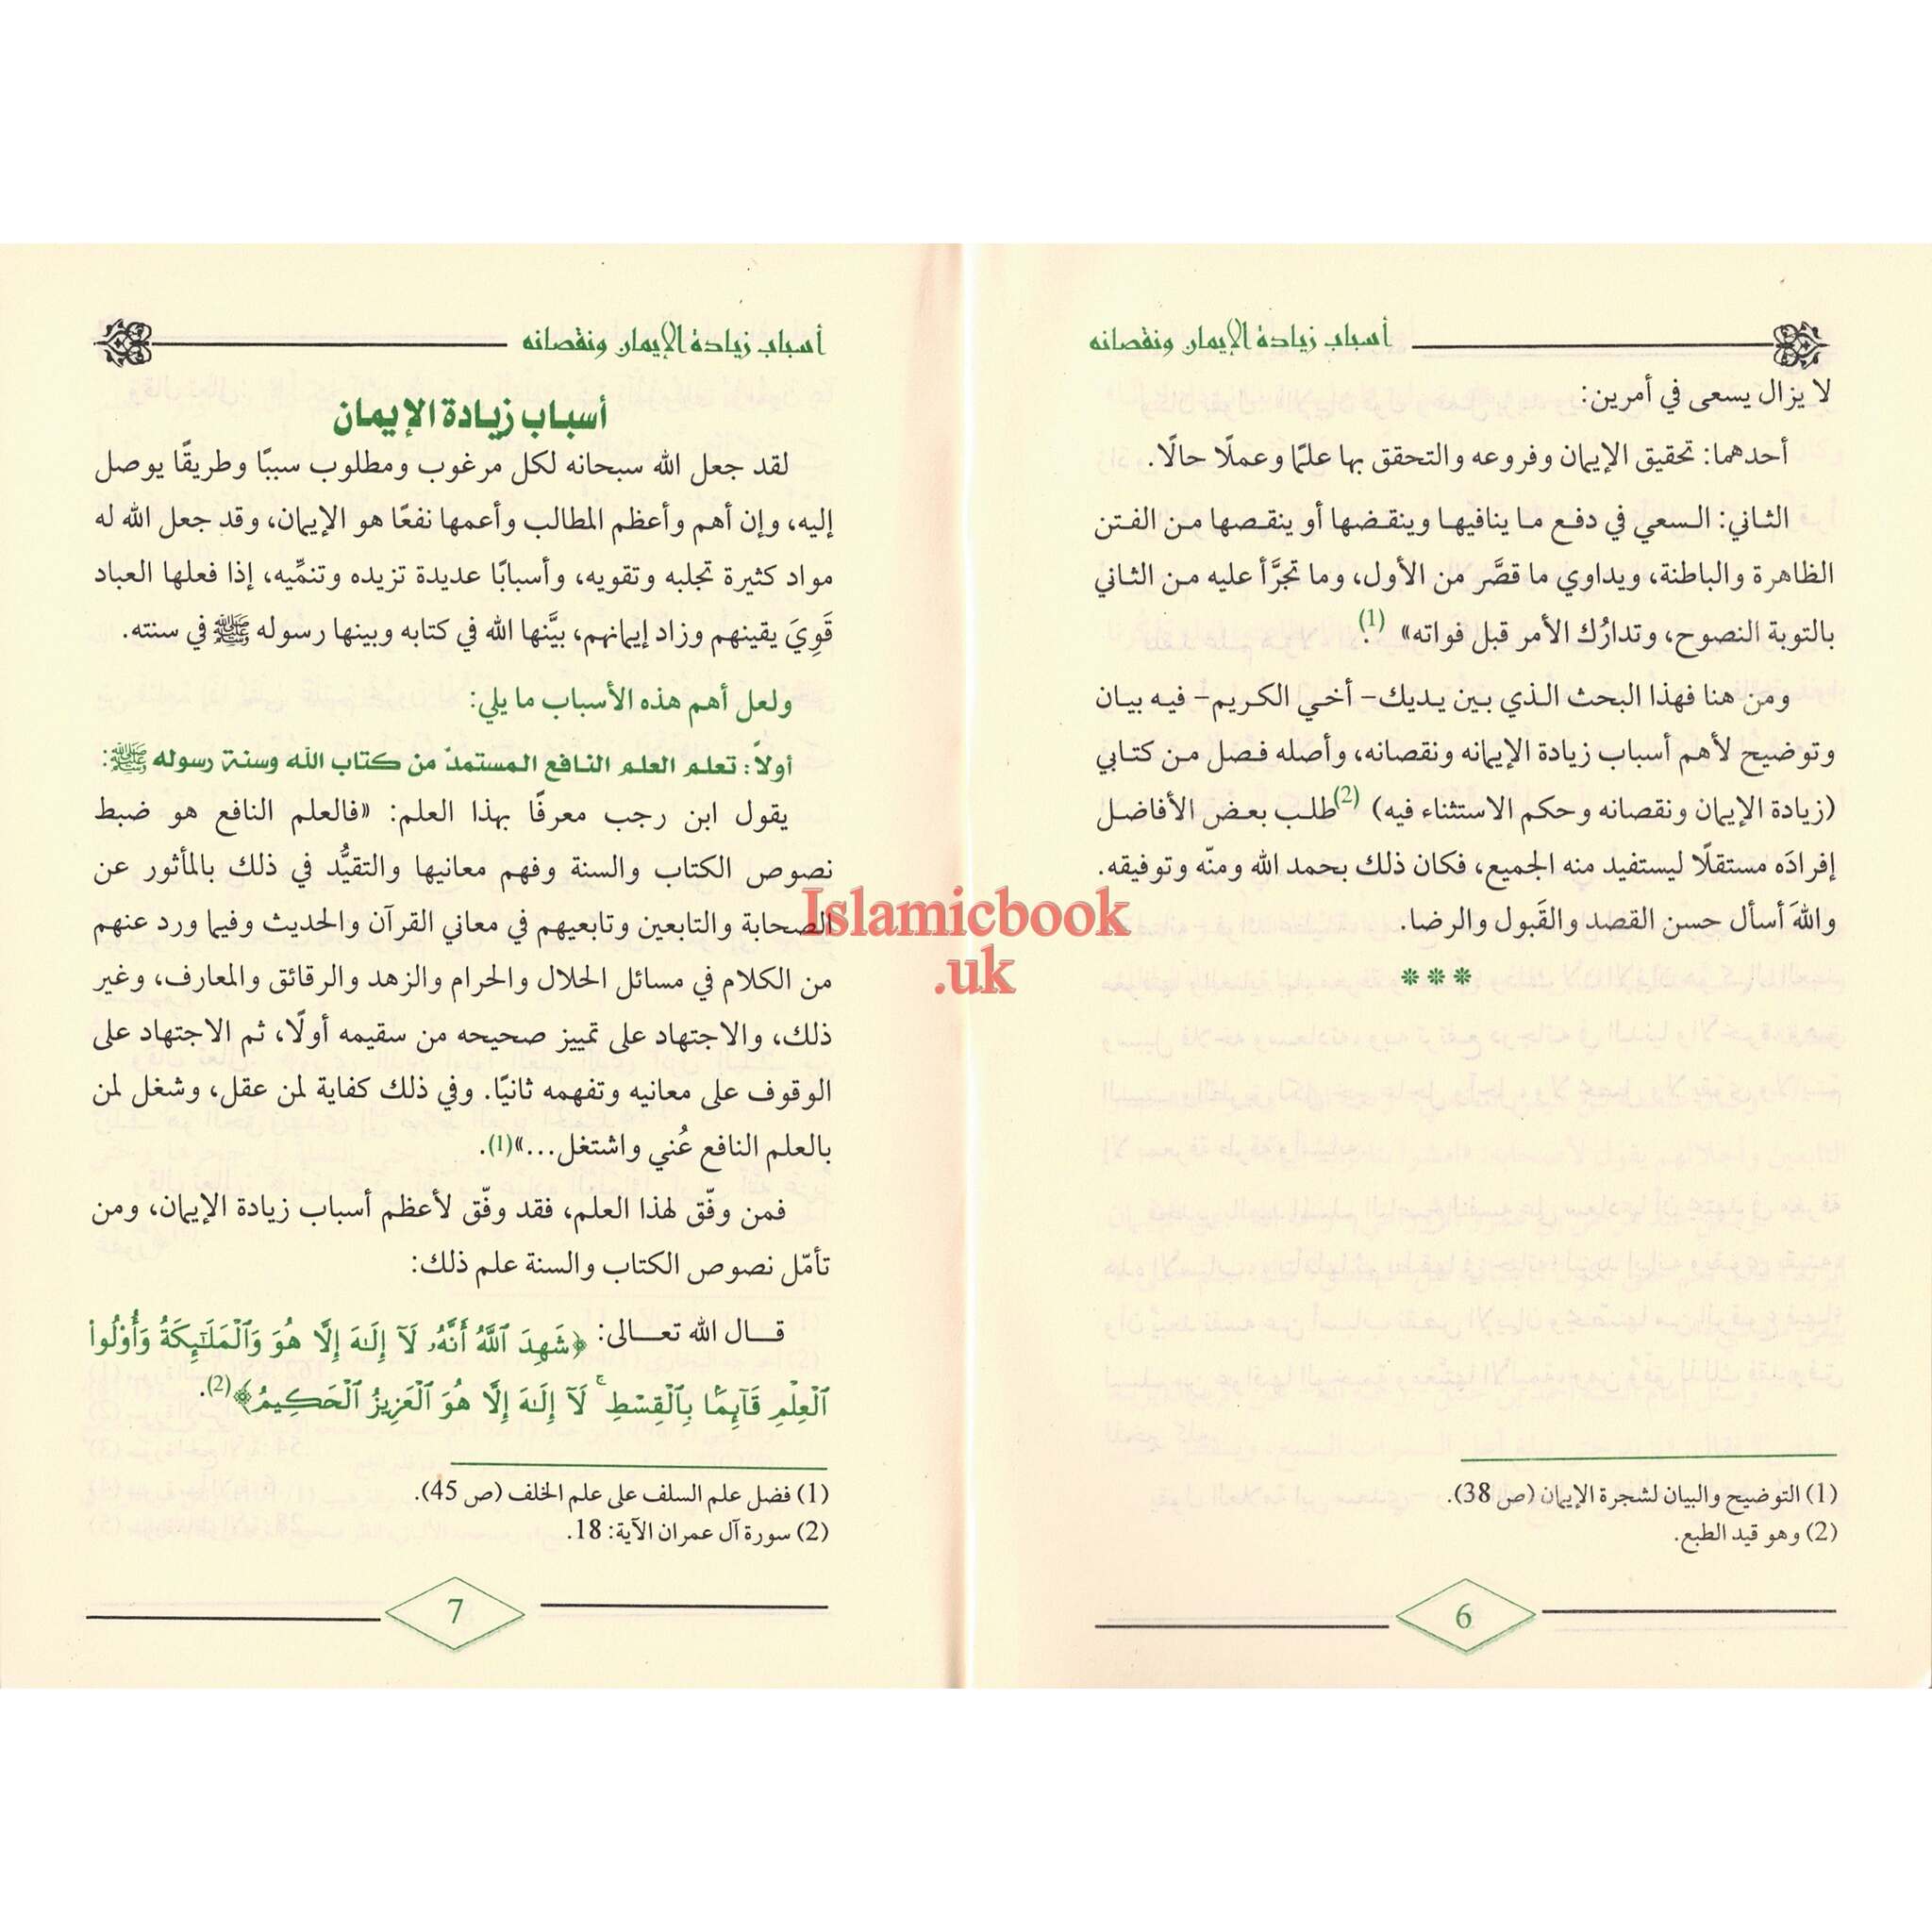 أسباب زيادة الإيمان ونقصانه
لا يزال يسعى في أمرين:
أحدهما: تحقيق الإيمان وفروعه والتحقق بها علمًا وعملًا حالًا.
الثاني: السعي في دفع ما ينافيها وينقضها أو ينقصها من الفتن
الظاهرة والباطنة، ويداوي ما قصَّر من الأول، وما تجرَّأ عليه من الثاني
بالتوبة النصوح، وتدارُك الأمر قبل فواته» (1).
ومن هنا فهذا البحث الذي بين يديك- أخي الكريم- فيه بيان
وتوضيح لأهم أسباب زيادة الإيمانه ونقصانه، وأصله فصل من كتابي
(زيادة الإيمان ونقصانه وحكم الاستثناء فيه) (2) طلب بعض الأفاضل
إفرادَه مستقلًا ليستفيد منه الجميع، فكان ذلك بحمد الله ومنّه وتوفيقه.
واللهَ أسأل حسن القصد والقَبول والرضا.
***
(1) التوضيح والبيان لشجرة الإيمان (ص 38).
(2) وهو قيد الطبع.
6
أسباب زيادة الإيمان ونقصانه
أسباب زيادة الإيمان
لقد جعل الله سبحانه لكل مرغوب ومطلوب سببًا وطريقًا يوصل
إليه، وإن أهم وأعظم المطالب وأعمها نفعًا هو الإيمان، وقد جعل الله له
مواد كثيرة تجلبه وتقويه، وأسبابًا عديدة تزيده وتنمِّيه، إذا فعلها العباد
قَوِيَ يقينهم وزاد إيمانهم، بيَّنها الله في كتابه وبينها رسوله ﷺ في سنته.
ولعل أهم هذه الأسباب ما يلي:
أولاً: تعلم العلم النافع المستمدّ من كتاب الله وسنة رسوله ﷺ:
يقول ابن رجب معرفًا بهذا العلم: «فالعلم النافع هو ضبط
نصوص الكتاب والسنة وفهم معانيها والتقيُّد في ذلك بالمأثور عن
الصحابة والتابعين وتابعيهم في معاني القرآن والحديث وفيما ورد عنهم
من الكلام في مسائل الحلال والحرام والزهد والرقائق والمعارف، وغير
ذلك، والاجتهاد على تمييز صحيحه من سقيمه أولًا، ثم الاجتهاد على
الوقوف على معانيه وتفهمه ثانيًا. وفي ذلك كفاية لمن عقل، وشغل لمن
بالعلم النافع عُني واشتغل...»(1).
فمن وفّق لهذا العلم، فقد وفّق لأعظم أسباب زيادة الإيمان، ومن
تأمّل نصوص الكتاب والسنة علم ذلك:
قال الله تعالى: ﴿شَهِدَ ٱللَّهُ أَنَّهُۥ لَآ إِلَـٰهَ إِلَّا هُوَ وَٱلْمَلَـٰٓئِكَةُ وَأُو۟لُوا۟
ٱلْعِلْمِ قَآئِمًۢا بِٱلْقِسْطِ ۚ لَآ إِلَـٰهَ إِلَّا هُوَ ٱلْعَزِيزُ ٱلْحَكِيمُ﴾(2).
(1) فضل علم السلف على علم الخلف (ص 45).
(2) سورة آل عمران الآية: 18.
7
Islamicbook
.uk